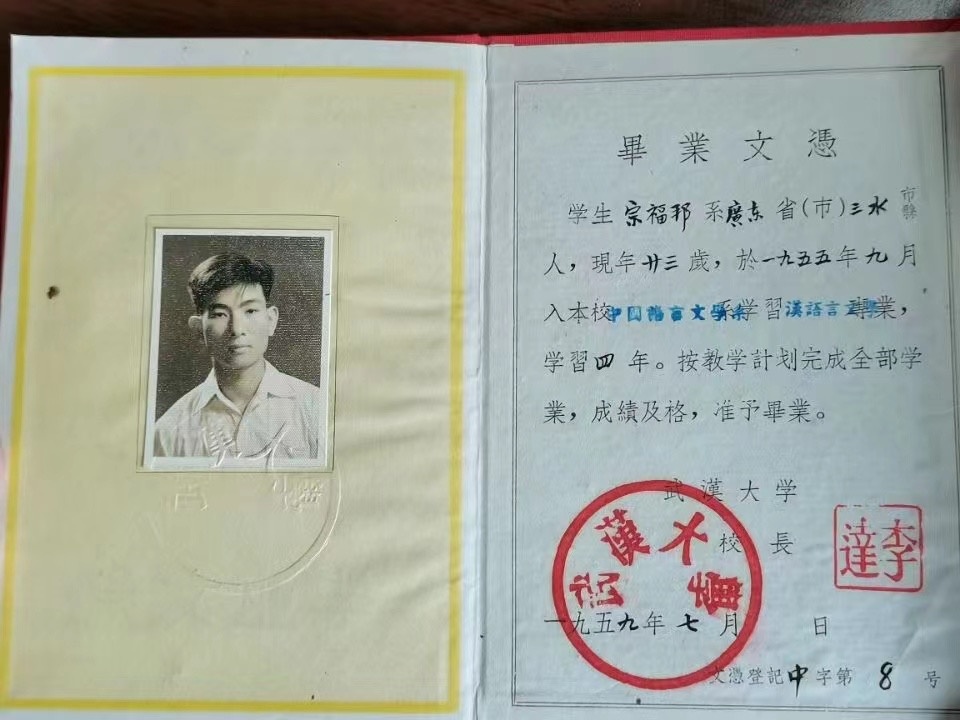 畢業文憑
学生 宗福邦 系廣东省(市)三水市縣
人，現年廿三歲，於一九五五年九月
入本校中國語言文學系学習漢語言文學專業，
学習四年。按教学計划完成全部学
業，成績及格，准予畢業。
武漢大学
校長
李達
一九五九年七月 日
文憑登記中字第8号